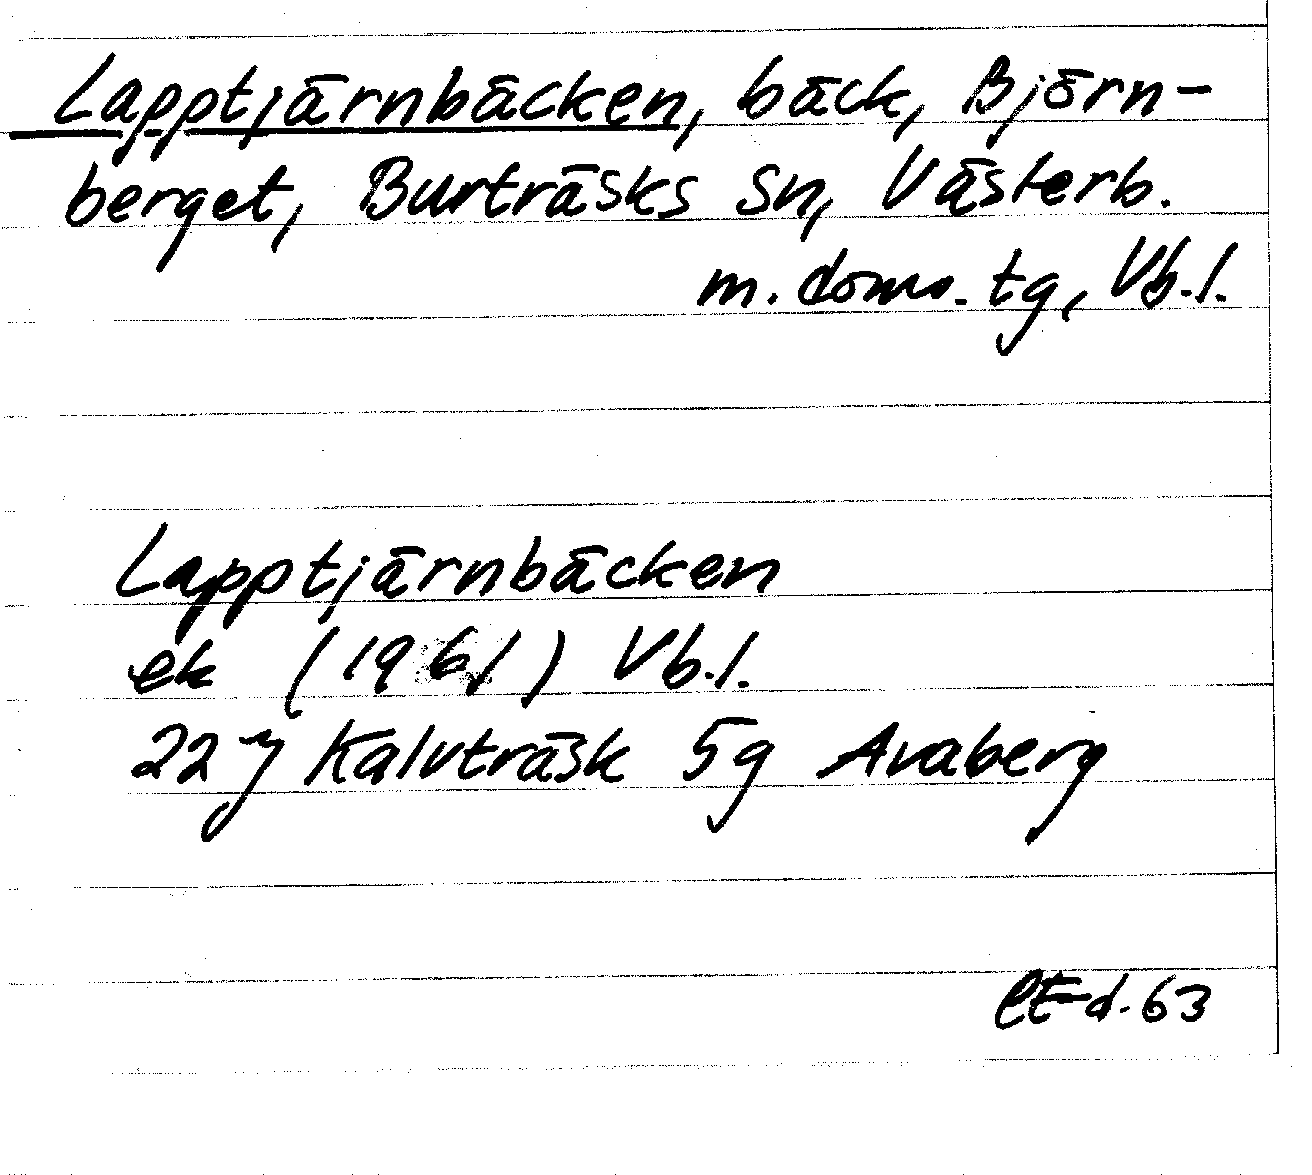 Lapptjärnbäcken, bäck, Björn-
berget, Burträsks Sn, Västerb.
m. doms. tg, Vb.l.
Lapptjärnbäcken
ek (1961) Vb.l.
22 J Kalvträsk 5g Avaberg
d. 63